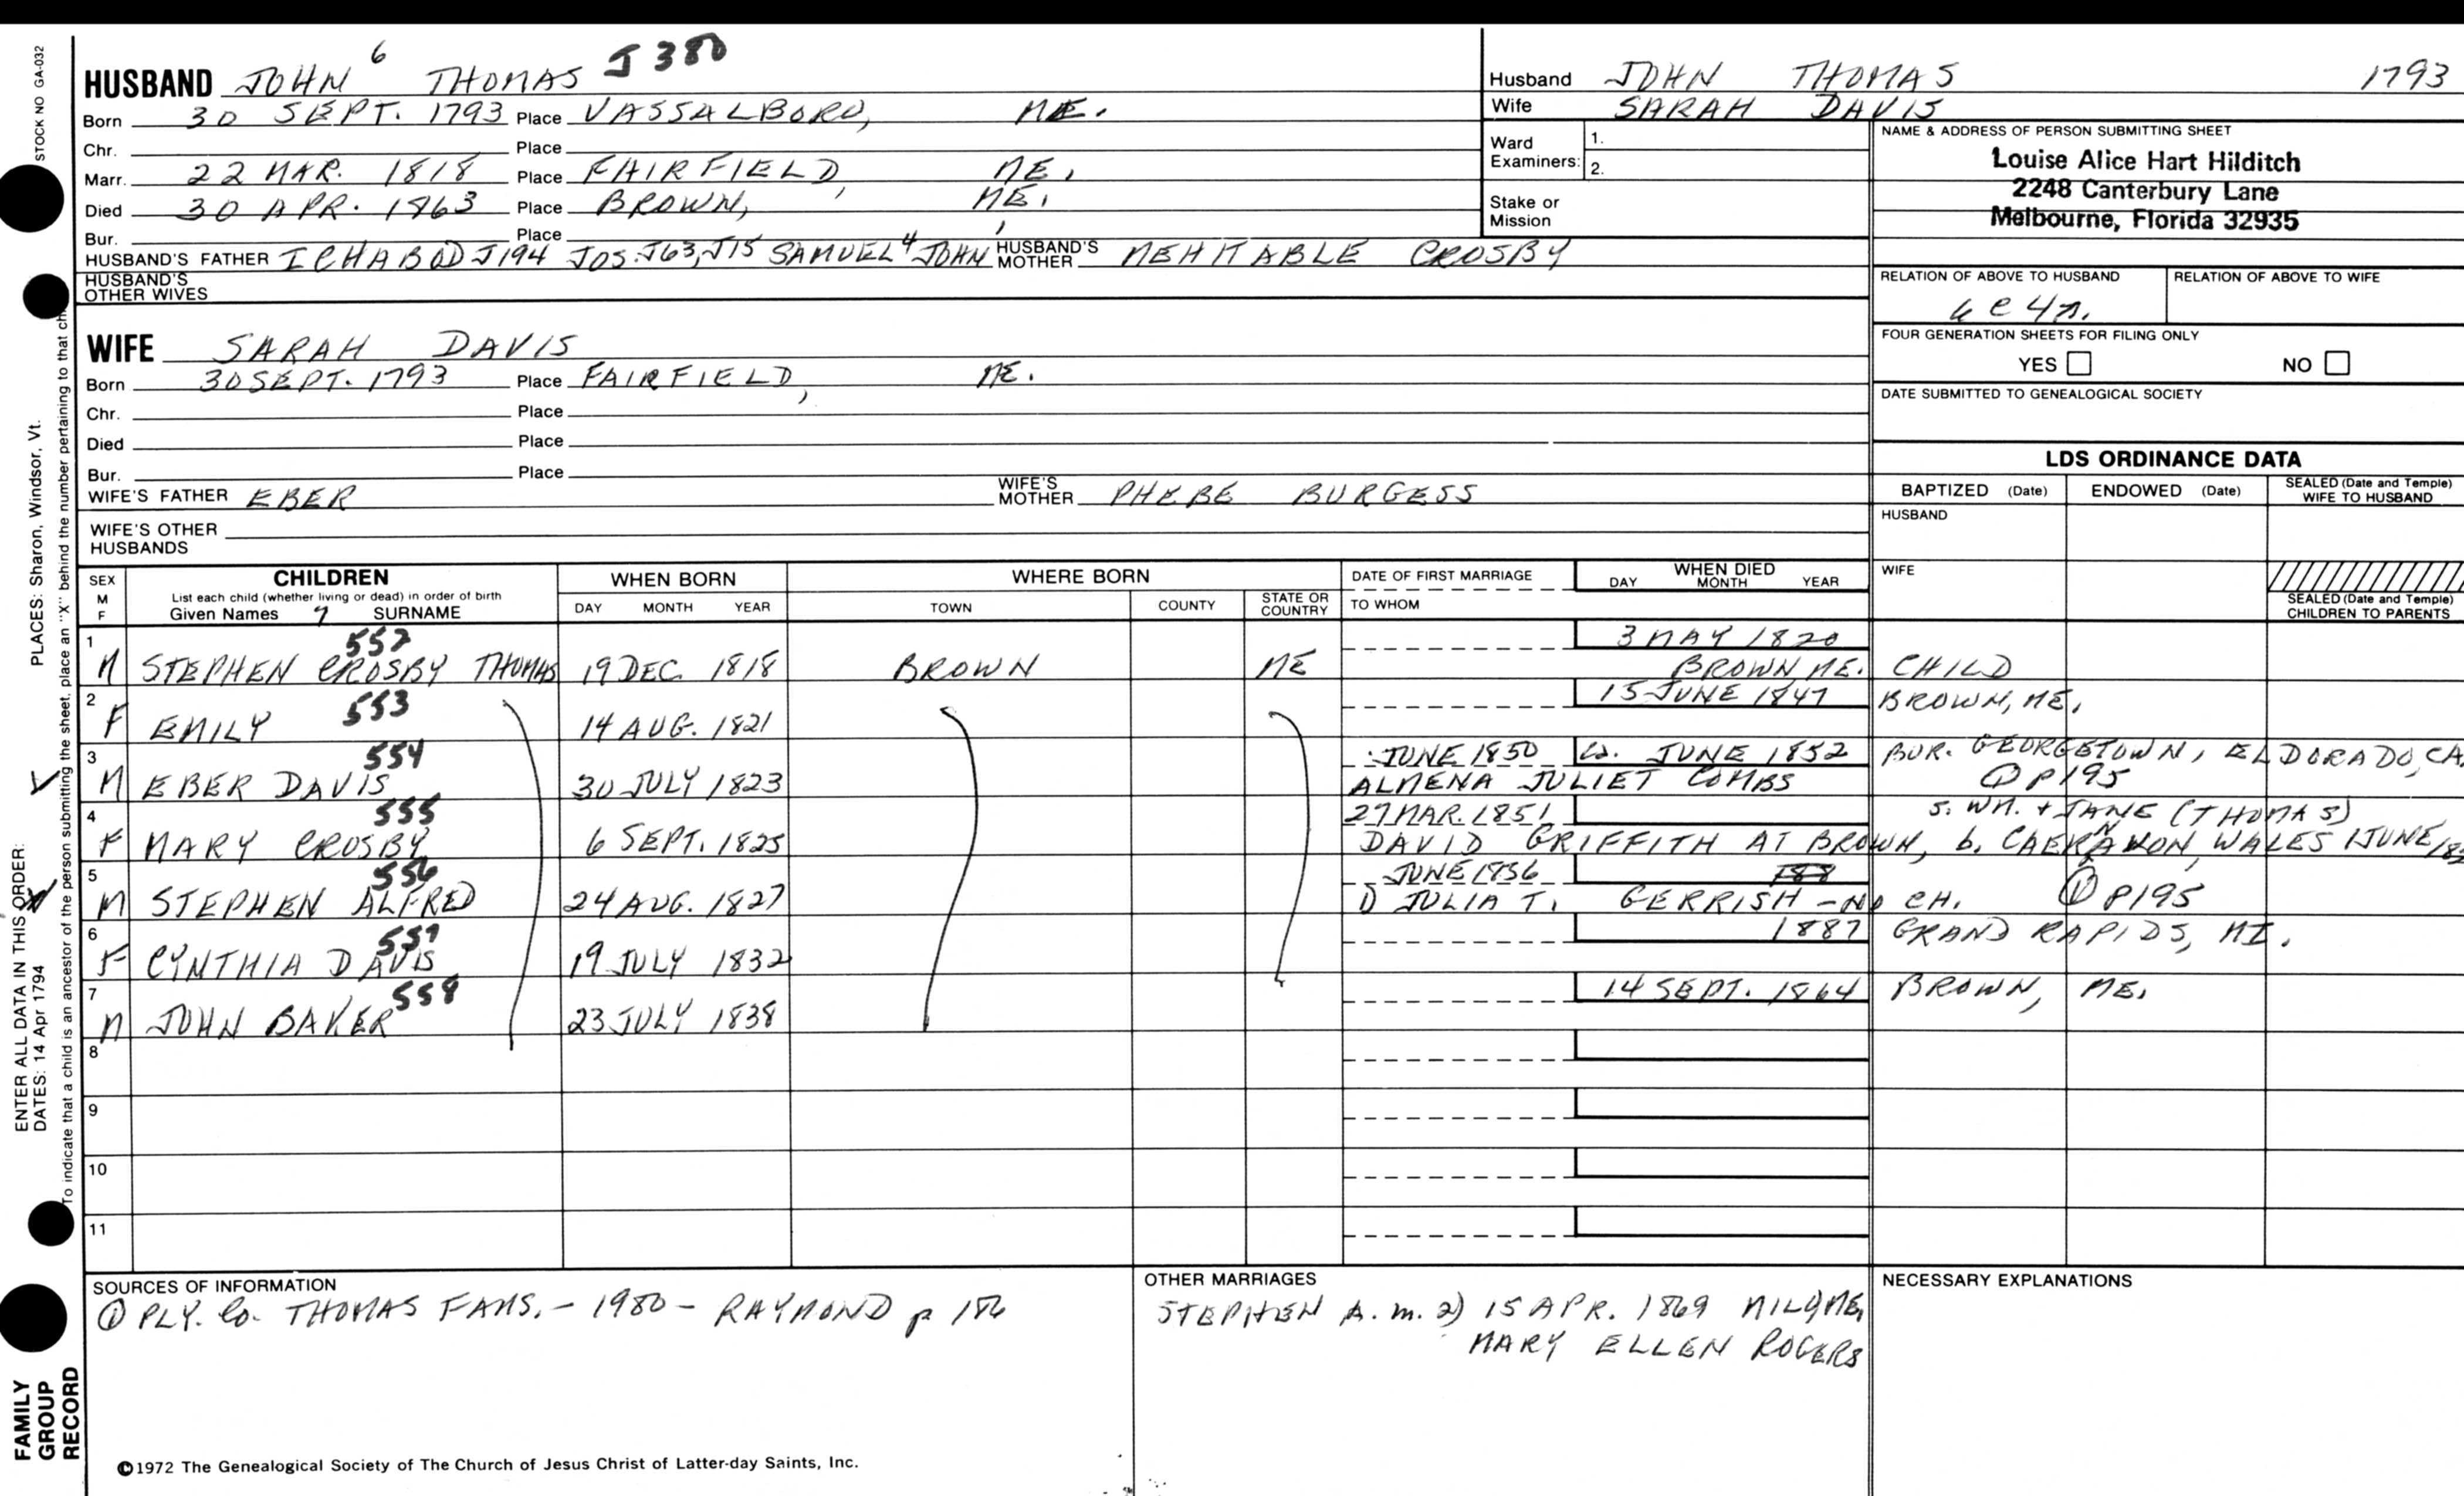 STOCK NO GA-032
HUSBAND JOHN 6 THOMAS J 380
Born 30 SEPT. 1793 Place VASSALBORO, ME.
Chr. Place
Marr. 22 MAR. 1818 Place FAIRFIELD, ME.
Died 30 APR. 1863 Place BROWN, ME.
Bur. Place
HUSBAND'S FATHER ICHABOD J194 JOS. J63, J15 SAMUEL 4 JOHN HUSBAND'S MOTHER MEHITABLE CROSBY
HUSBAND'S OTHER WIVES
Husband JOHN THOMAS 1793
Wife SARAH DAVIS
Ward Examiners: 1.
2.
Stake or Mission
NAME & ADDRESS OF PERSON SUBMITTING SHEET
Louise Alice Hart Hilditch
2248 Canterbury Lane
Melbourne, Florida 32935
RELATION OF ABOVE TO HUSBAND RELATION OF ABOVE TO WIFE
6 C 4 R.
FOUR GENERATION SHEETS FOR FILING ONLY
YES NO
DATE SUBMITTED TO GENEALOGICAL SOCIETY
WIFE SARAH DAVIS
Born 30 SEPT. 1793 Place FAIRFIELD, ME.
Chr. Place
Died Place
Bur. Place
WIFE'S FATHER EBER WIFE'S MOTHER PHEBE BURGESS
WIFE'S OTHER HUSBANDS
LDS ORDINANCE DATA
BAPTIZED (Date) ENDOWED (Date) SEALED (Date and Temple) WIFE TO HUSBAND
HUSBAND
WIFE
SEALED (Date and Temple) CHILDREN TO PARENTS
SEX M F CHILDREN WHEN BORN WHERE BORN DATE OF FIRST MARRIAGE WHEN DIED
List each child (whether living or dead) in order of birth
Given Names 7 SURNAME DAY MONTH YEAR TOWN COUNTY STATE OR COUNTRY TO WHOM DAY MONTH YEAR
1 557 3 MAY 1820
M STEPHEN CROSBY THOMAS 19 DEC. 1818 BROWN ME BROWN ME. CHILD
2 553 15 JUNE 1847 BROWN, ME.
F EMILY 14 AUG. 1821
3 554 JUNE 1850 Ca. JUNE 1852 BUR. GEORGETOWN, ELDORADO, CA.
M EBER DAVIS 30 JULY 1823 ALMENA JULIET COMBS ① P195
4 555 27 MAR. 1851 S. WM. + JANE (THOMAS)
F MARY CROSBY 6 SEPT. 1825 DAVID GRIFFITH AT BROWN, b. CAERNAVON, WALES 1 JUNE
5 556 JUNE 1856
M STEPHEN ALFRED 24 AUG. 1827 1) JULIA T. GERRISH - NO CH. ① P195
6 557 1887 GRAND RAPIDS, MI.
F CYNTHIA DAVIS 19 JULY 1832
7 558 14 SEPT. 1864 BROWN, ME.
M JOHN BAKER 23 JULY 1838
8
9
10
11
SOURCES OF INFORMATION
① PLY. Co. THOMAS FAMS. - 1980 - RAYMOND p 186
OTHER MARRIAGES
STEPHEN A. m. 2) 15 APR. 1869 MILO, ME,
MARY ELLEN ROGERS
NECESSARY EXPLANATIONS
©1972 The Genealogical Society of The Church of Jesus Christ of Latter-day Saints, Inc.
ENTER ALL DATA IN THIS ORDER:
DATES: 14 Apr 1794 PLACES: Sharon, Windsor, Vt.
To indicate that a child is an ancestor of the person submitting the sheet, place an "X" behind the number pertaining to that
FAMILY
GROUP
RECORD